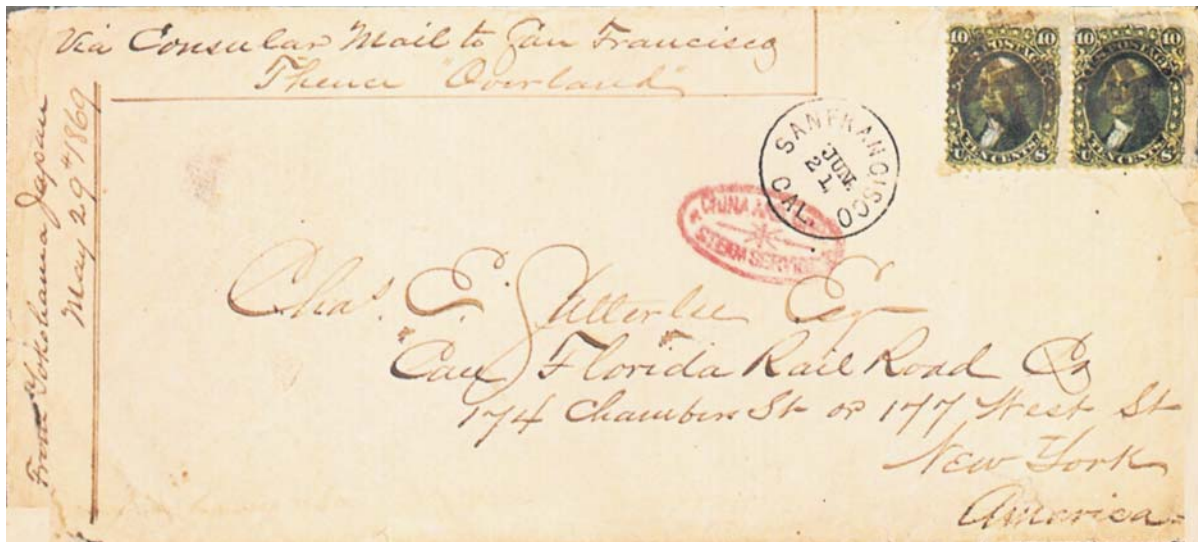 Via Consular Mail to San Francisco
Thence "Overland"
From Yokohama Japan
May 29th 1869
10 U.S. POSTAGE 10
TEN CENTS
U S
10 U.S. POSTAGE 10
TEN CENTS
U S
SAN FRANCISCO
JUN.
21
CAL.
CHINA AND
STEAM SERVICE
Chas. E. Satterlee Esq
Care Florida Rail Road Co
174 Chambers St or 177 West St
New York
America